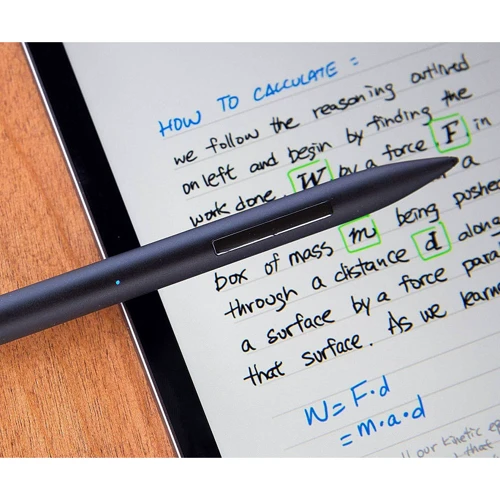 HOW TO CALCULATE :
we follow the reasoning outlined
on left and begin by finding the
work done W by a force F in
a
box of mass m being pushed
through a distance d along
a surface by a force para
that surface. As we learne
W = F·d
= m·a·d
our kinetic
that